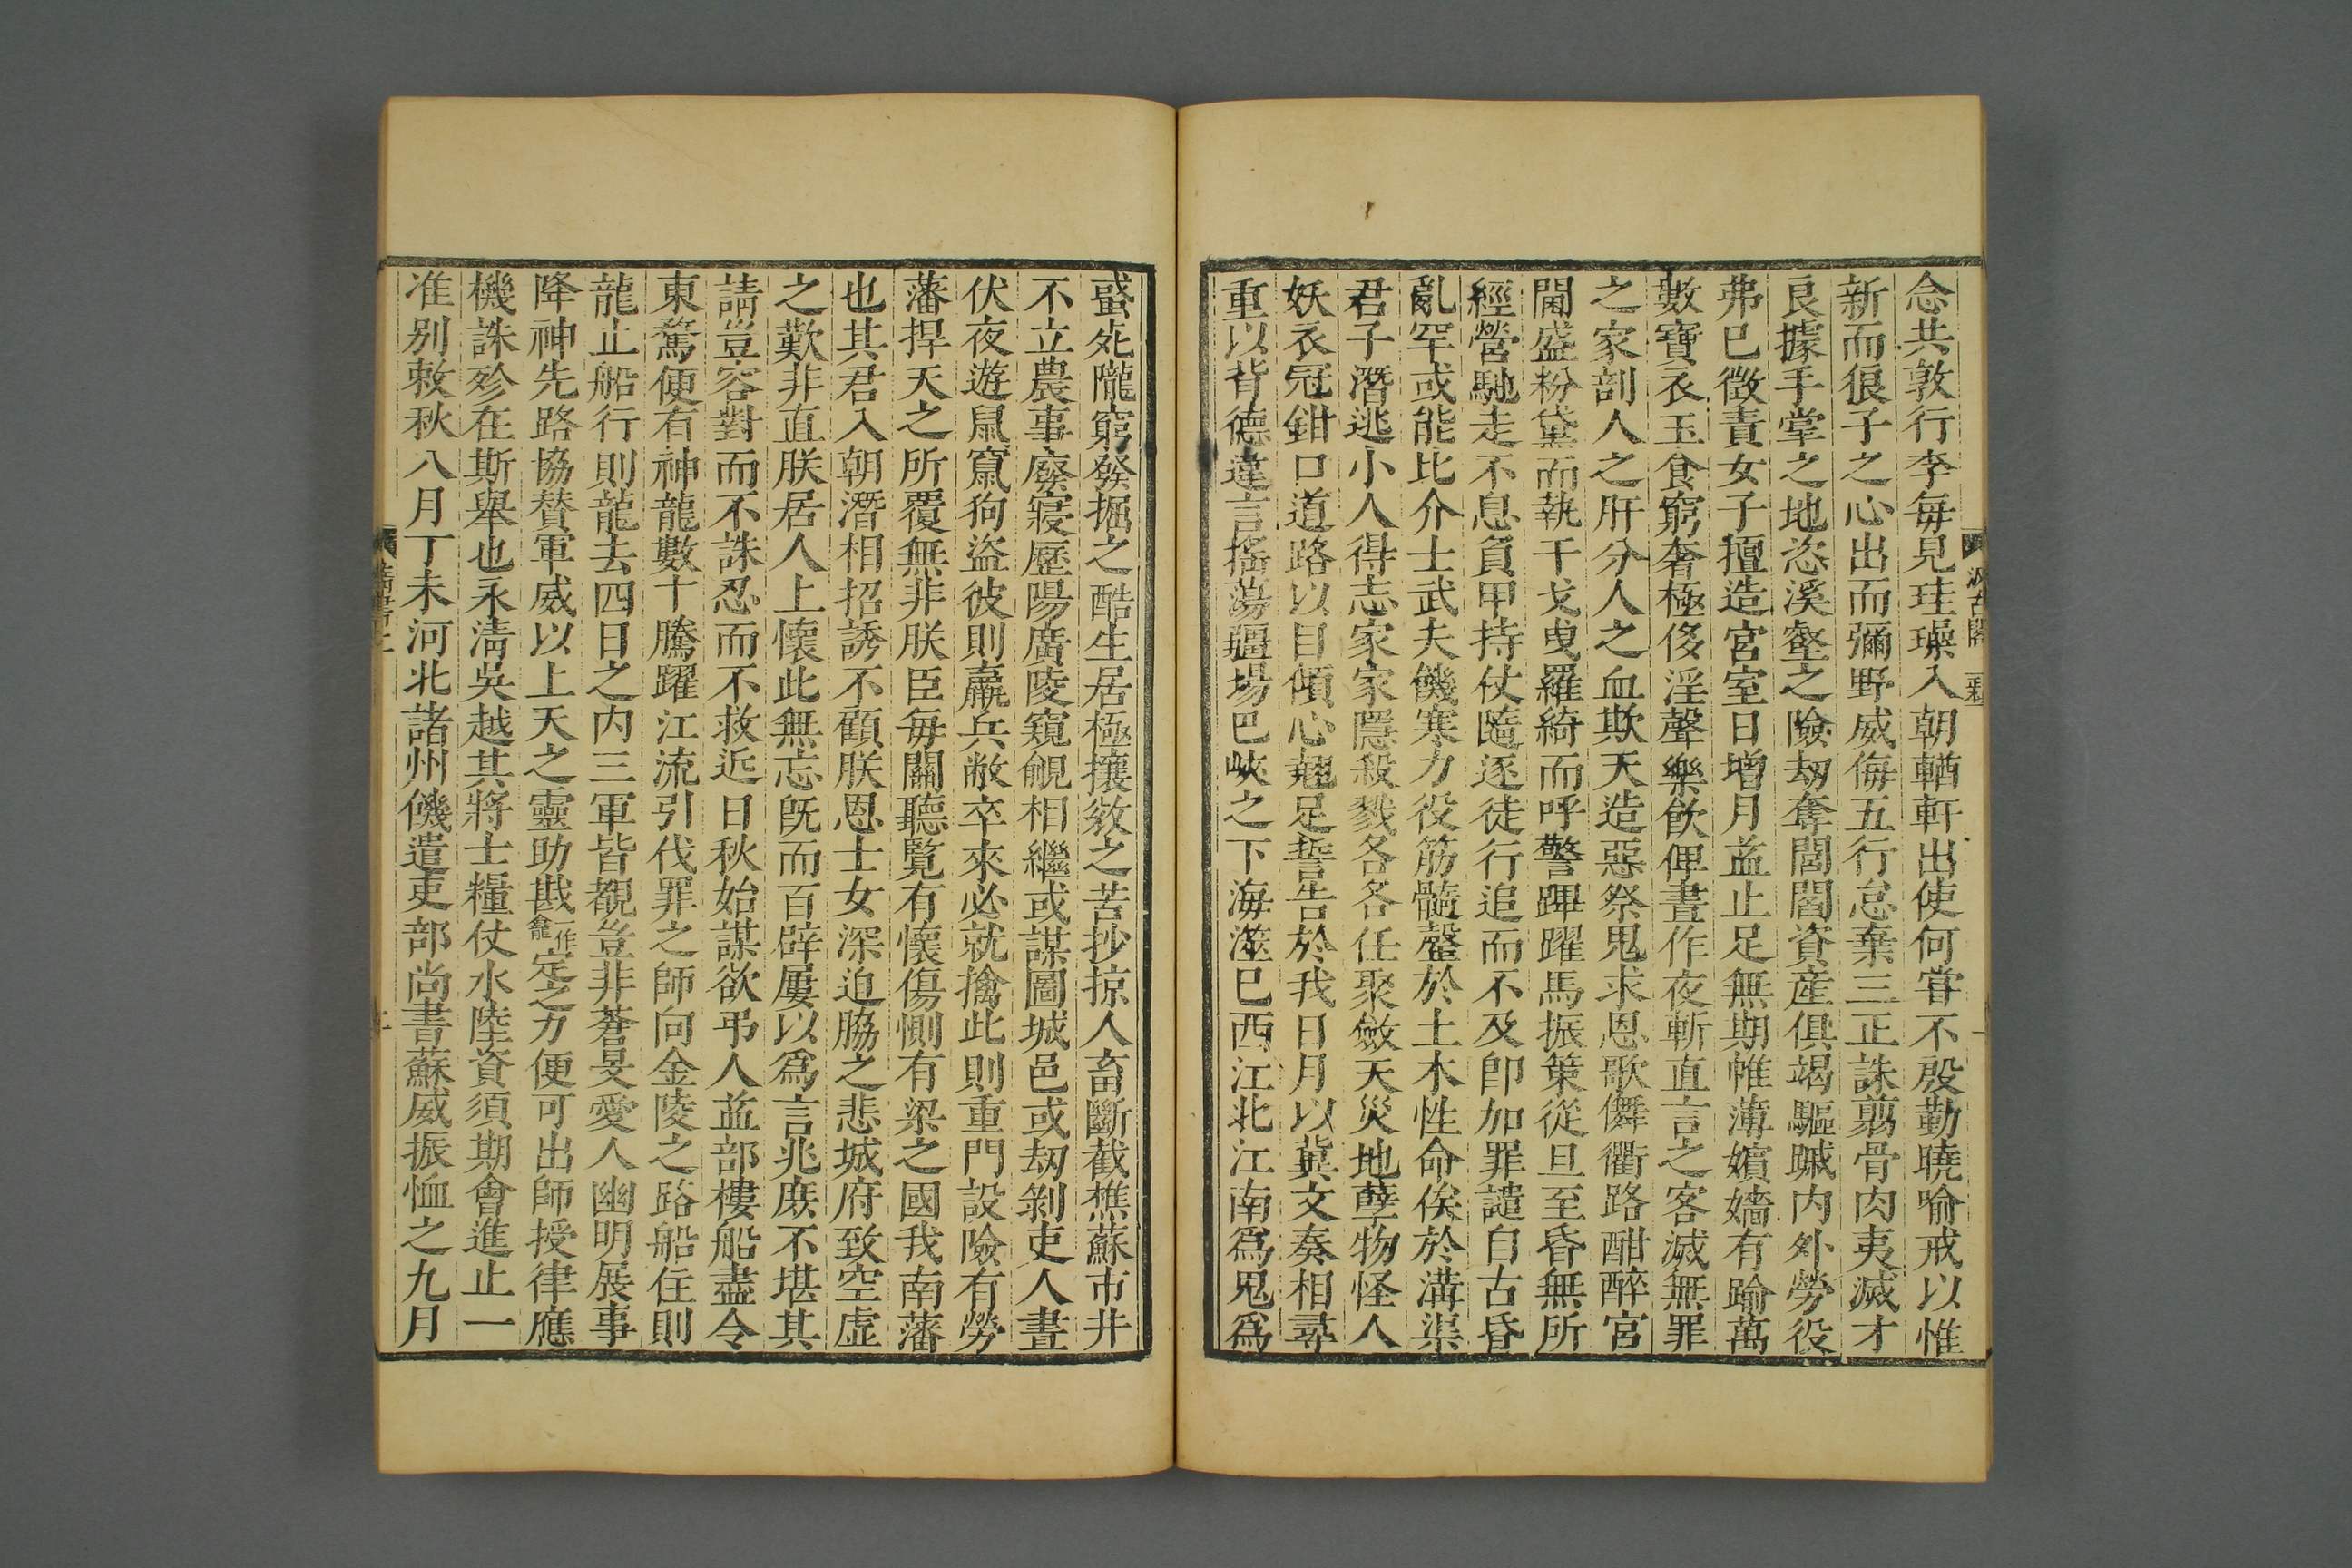 念共敦行李每見珪璪入朝輶軒出使何嘗不殷勤曉喻戒以惟
新而狼子之心出而彌野威侮五行怠棄三正誅翦骨肉夷滅才
良據手掌之地恣溪壑之險劫奪閭閻資産俱竭驅蹙内外勞役
弗巳徵責女子擅造宮室日增月益止足無期帷薄嬪嬙有踰萬
數寶衣玉食窮奢極侈淫聲樂飲俾晝作夜斬直言之客滅無罪
之家剖人之肝分人之血欺天造惡祭鬼求恩歌儛衢路酣醉宮
閫盛粉黛而執干戈曵羅綺而呼警蹕躍馬振策從旦至昏無所
經營馳走不息負甲持仗隨逐徒行追而不及卽加罪譴自古昏
亂罕或能比介士武夫饑寒力役筋髓罄於土木性命俟於溝渠
君子潛逃小人得志家家隱殺戮各各任聚斂天災地孽物怪人
妖衣冠鉗口道路以目傾心翹足誓告於我日月以冀文奏相尋
重以背德違言搖蕩疆場巴峽之下海澨巳西江北江南爲鬼爲
蜮死隴窮發掘之酷生居極攘敓之苦抄掠人畜斷截樵蘇市井
不立農事廢寢歷陽廣陵窺覦相繼或謀圖城邑或刼剝吏人晝
伏夜遊鼠竄狗盜彼則羸兵敝卒來必就擒此則重門設險有勞
藩捍天之所覆無非朕臣每關聽覽有懷傷惻有梁之國我南藩
也其君入朝潛相招誘不顧朕恩士女深迫脇之悲城府致空虛
之歎非直朕居人上懷此無忘旣而百辟屢以爲言兆庶不堪其
請豈容對而不誅忍而不救近日秋始謀欲弔人益部樓船盡令
東騖便有神龍數十騰躍江流引伐罪之師向金陵之路船住則
龍止船行則龍去四日之内三軍皆覩豈非蒼旻愛人幽明展事
降神先路協賛軍威以上天之靈助戡一作龕定之力便可出師授律應
機誅殄在斯舉也永淸吳越其將士糧仗水陸資須期會進止一
准别敕秋八月丁未河北諸州饑遣吏部尚書蘇威振恤之九月